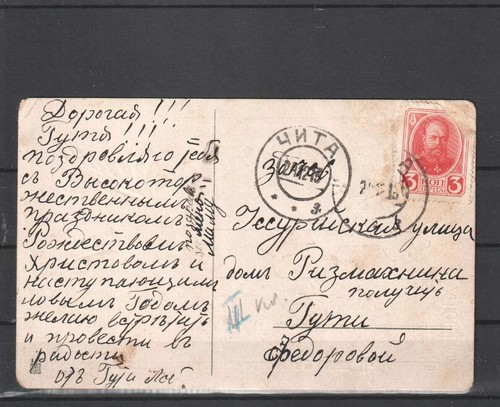 Дорогая!!!
Гутя!!!
поздровляю тебя
съ Высокотор
жественнымъ
праздникомъ
Рождествомъ
Христовомъ и
наступающимъ
Новымъ Годомъ
желаю встрѣтить
и провести въ
радости
отъ
поцелуй
меня
Милку
ЧИТА
3
3 КОП 3
Уссурийская улица
домъ Ризмахнина
получить
Гути
Федоровой
III кл.